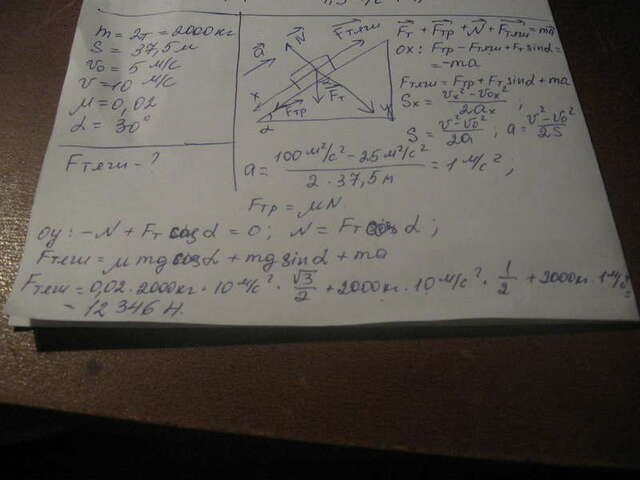 m = 2т = 2000кг
S = 37,5м
v₀ = 5 м/с
v = 10 м/с
μ = 0,02
α = 30°
Fтяги - ?
a⃗
N⃗
F⃗тяги
x
α
F⃗тр
F⃗т
y
F⃗т + F⃗тр + N⃗ + F⃗тяги = ma⃗
ox: Fтр - Fтяги + Fт sinα =
= -ma
Fтяги = Fтр + Fт sinα + ma
Sx = (vx² - v₀x²)/(2ax) ;
S = (v² - v₀²)/(2a) ; a = (v² - v₀²)/(2S)
a = (100 м²/с² - 25 м²/с²)/(2 · 37,5 м) = 1 м/с² ,
Fтр = μN
oy: -N + Fт cosα = 0; N = Fт cosα ;
Fтяги = μmg cosα + mg sinα + ma
Fтяги = 0,02 · 2000кг · 10 м/с² · √3/2 + 2000кг · 10 м/с² · 1/2 + 2000кг · 1 м/с² =
- 12346 Н.